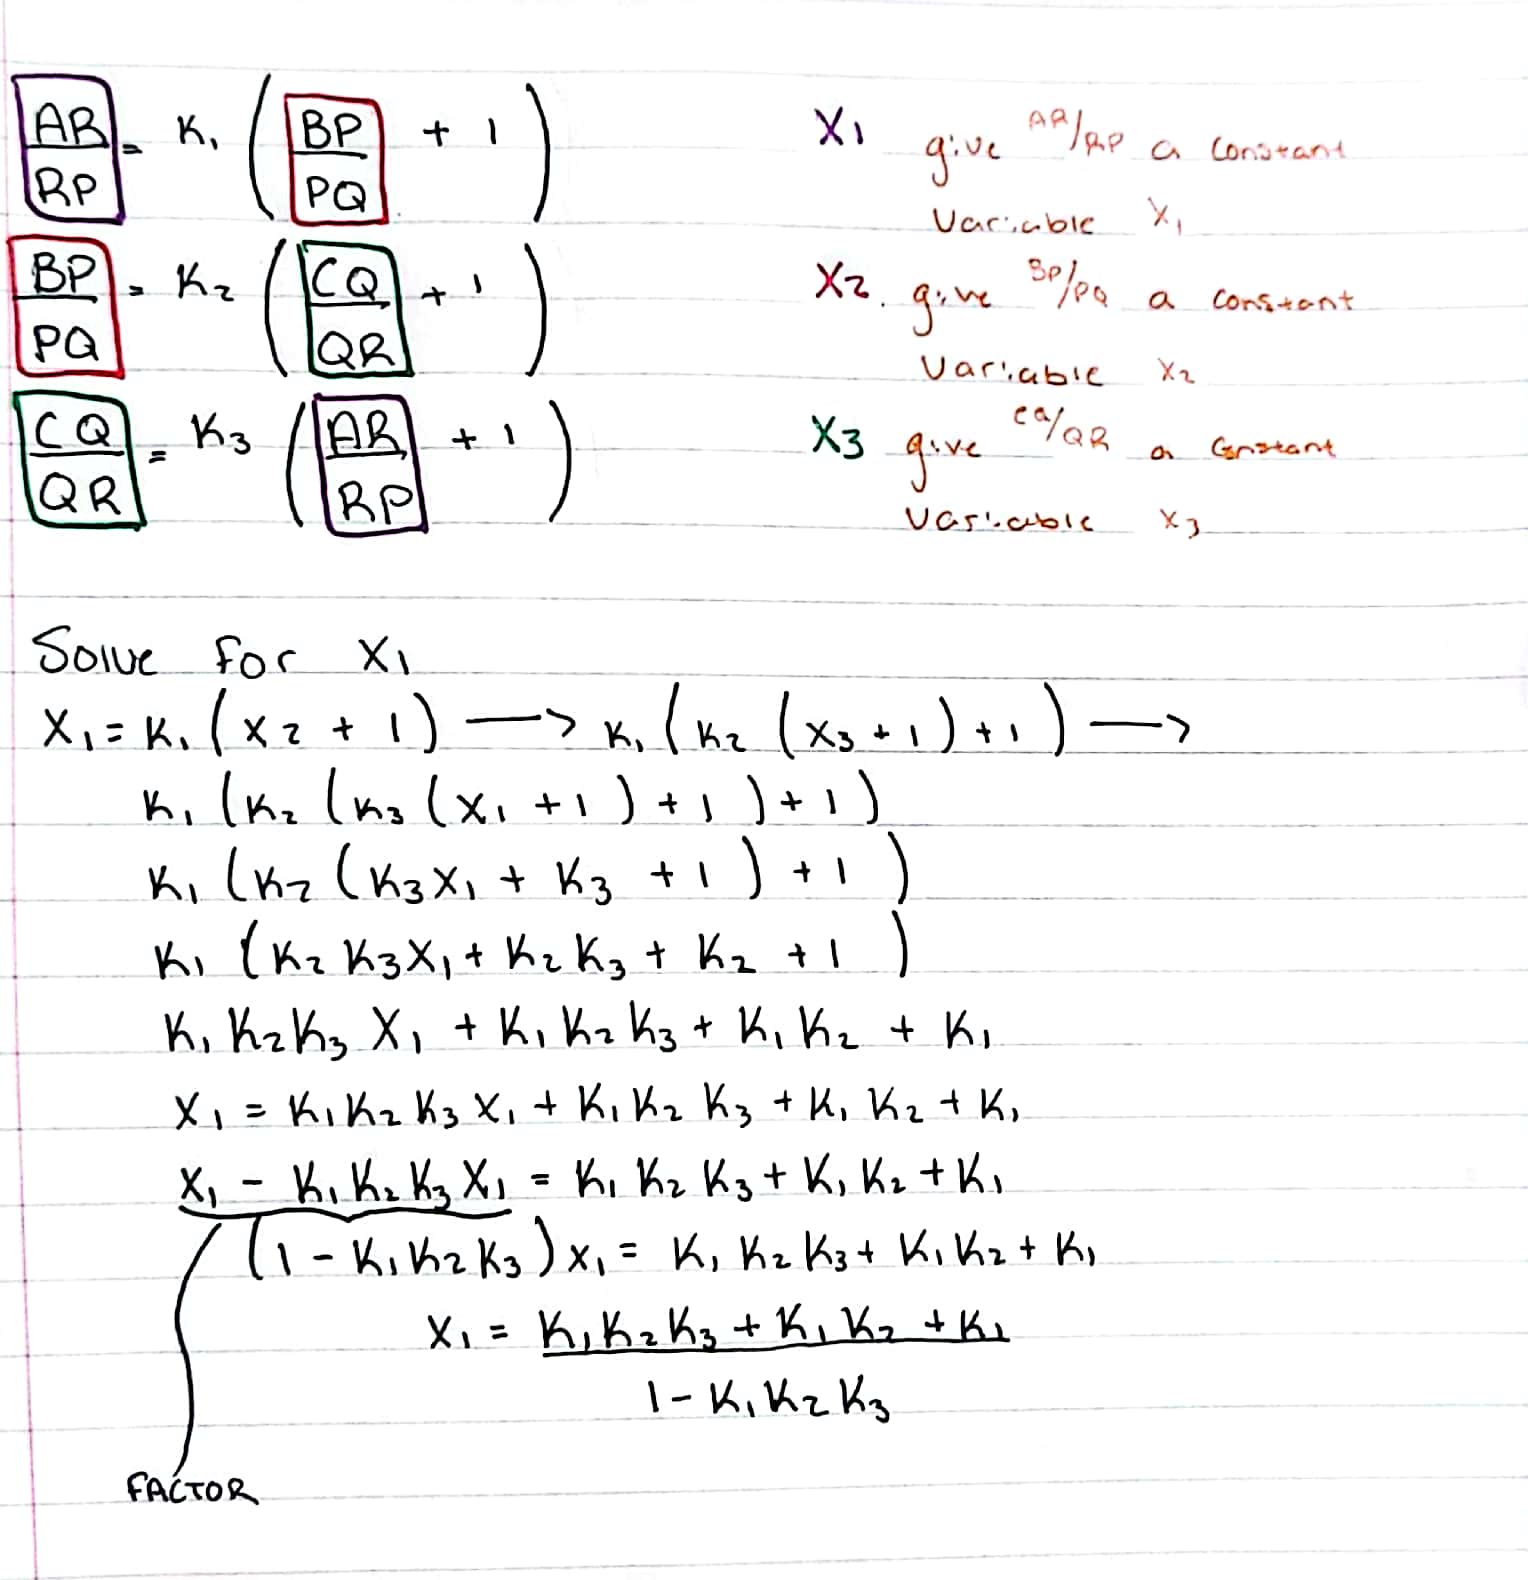 AR/RP = K₁ (BP/PQ + 1)
X₁ give AR/RP a constant
variable X₁
BP/PQ = K₂ (CQ/QR + 1)
X₂. give BP/PQ a constant
variable X₂
CQ/QR = K₃ (AR/RP + 1)
X₃ give CQ/QR a constant
variable X₃
Solve for X₁
X₁ = K₁ (X₂ + 1) → K₁ (K₂ (X₃ + 1) + 1) →
K₁ (K₂ (K₃ (X₁ + 1) + 1) + 1)
K₁ (K₂ (K₃X₁ + K₃ + 1) + 1)
K₁ (K₂K₃X₁ + K₂K₃ + K₂ + 1)
K₁K₂K₃X₁ + K₁K₂K₃ + K₁K₂ + K₁
X₁ = K₁K₂K₃X₁ + K₁K₂K₃ + K₁K₂ + K₁
X₁ - K₁K₂K₃X₁ = K₁K₂K₃ + K₁K₂ + K₁
(1 - K₁K₂K₃)X₁ = K₁K₂K₃ + K₁K₂ + K₁
X₁ = K₁K₂K₃ + K₁K₂ + K₁
1 - K₁K₂K₃
FACTOR